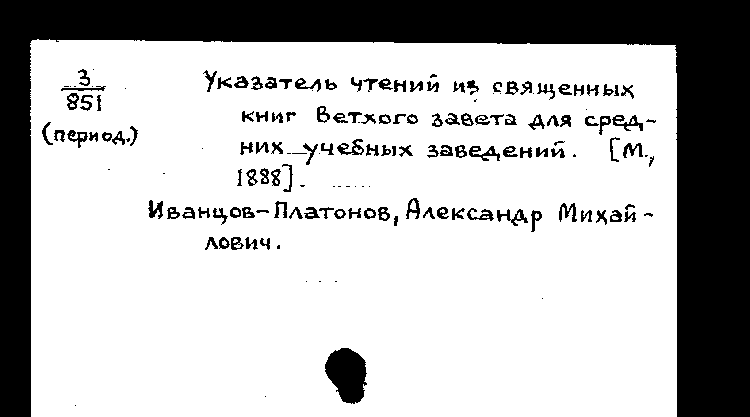 3/851
(период.)
Указатель чтений из священных
книг Ветхого завета для сред-
них учебных заведений. [М.,
1888].
Иванцов-Платонов, Александр Михай-
лович.